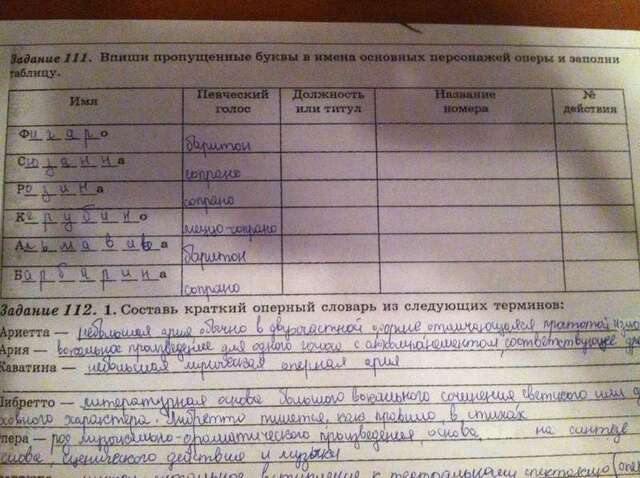 Задание 111. Впиши пропущенные буквы в имена основных персонажей оперы и заполни
таблицу.
Имя Певческий голос Должность или титул Название номера № действия
Фигаро баритон
Сюзанна сопрано
Розина сопрано
Керубино меццо-сопрано
Альмавива баритон
Барбарина сопрано
Задание 112. 1. Составь краткий оперный словарь из следующих терминов:
Ариетта — небольшая ария обычно в двухчастной форме отличающаяся простотой
Ария — вокальное произведение для одного голоса с аккомпанементом, соответствующее
Каватина — небольшая лирическая оперная ария
Либретто — литературная основа большого вокального сочинения светского или
ховного характера. Либретто пишется, как правило, в стихах
пера — род музыкально-драматического произведения, основа на синтезе
слова, сценического действия и музыки
вступление к театральному спектаклю